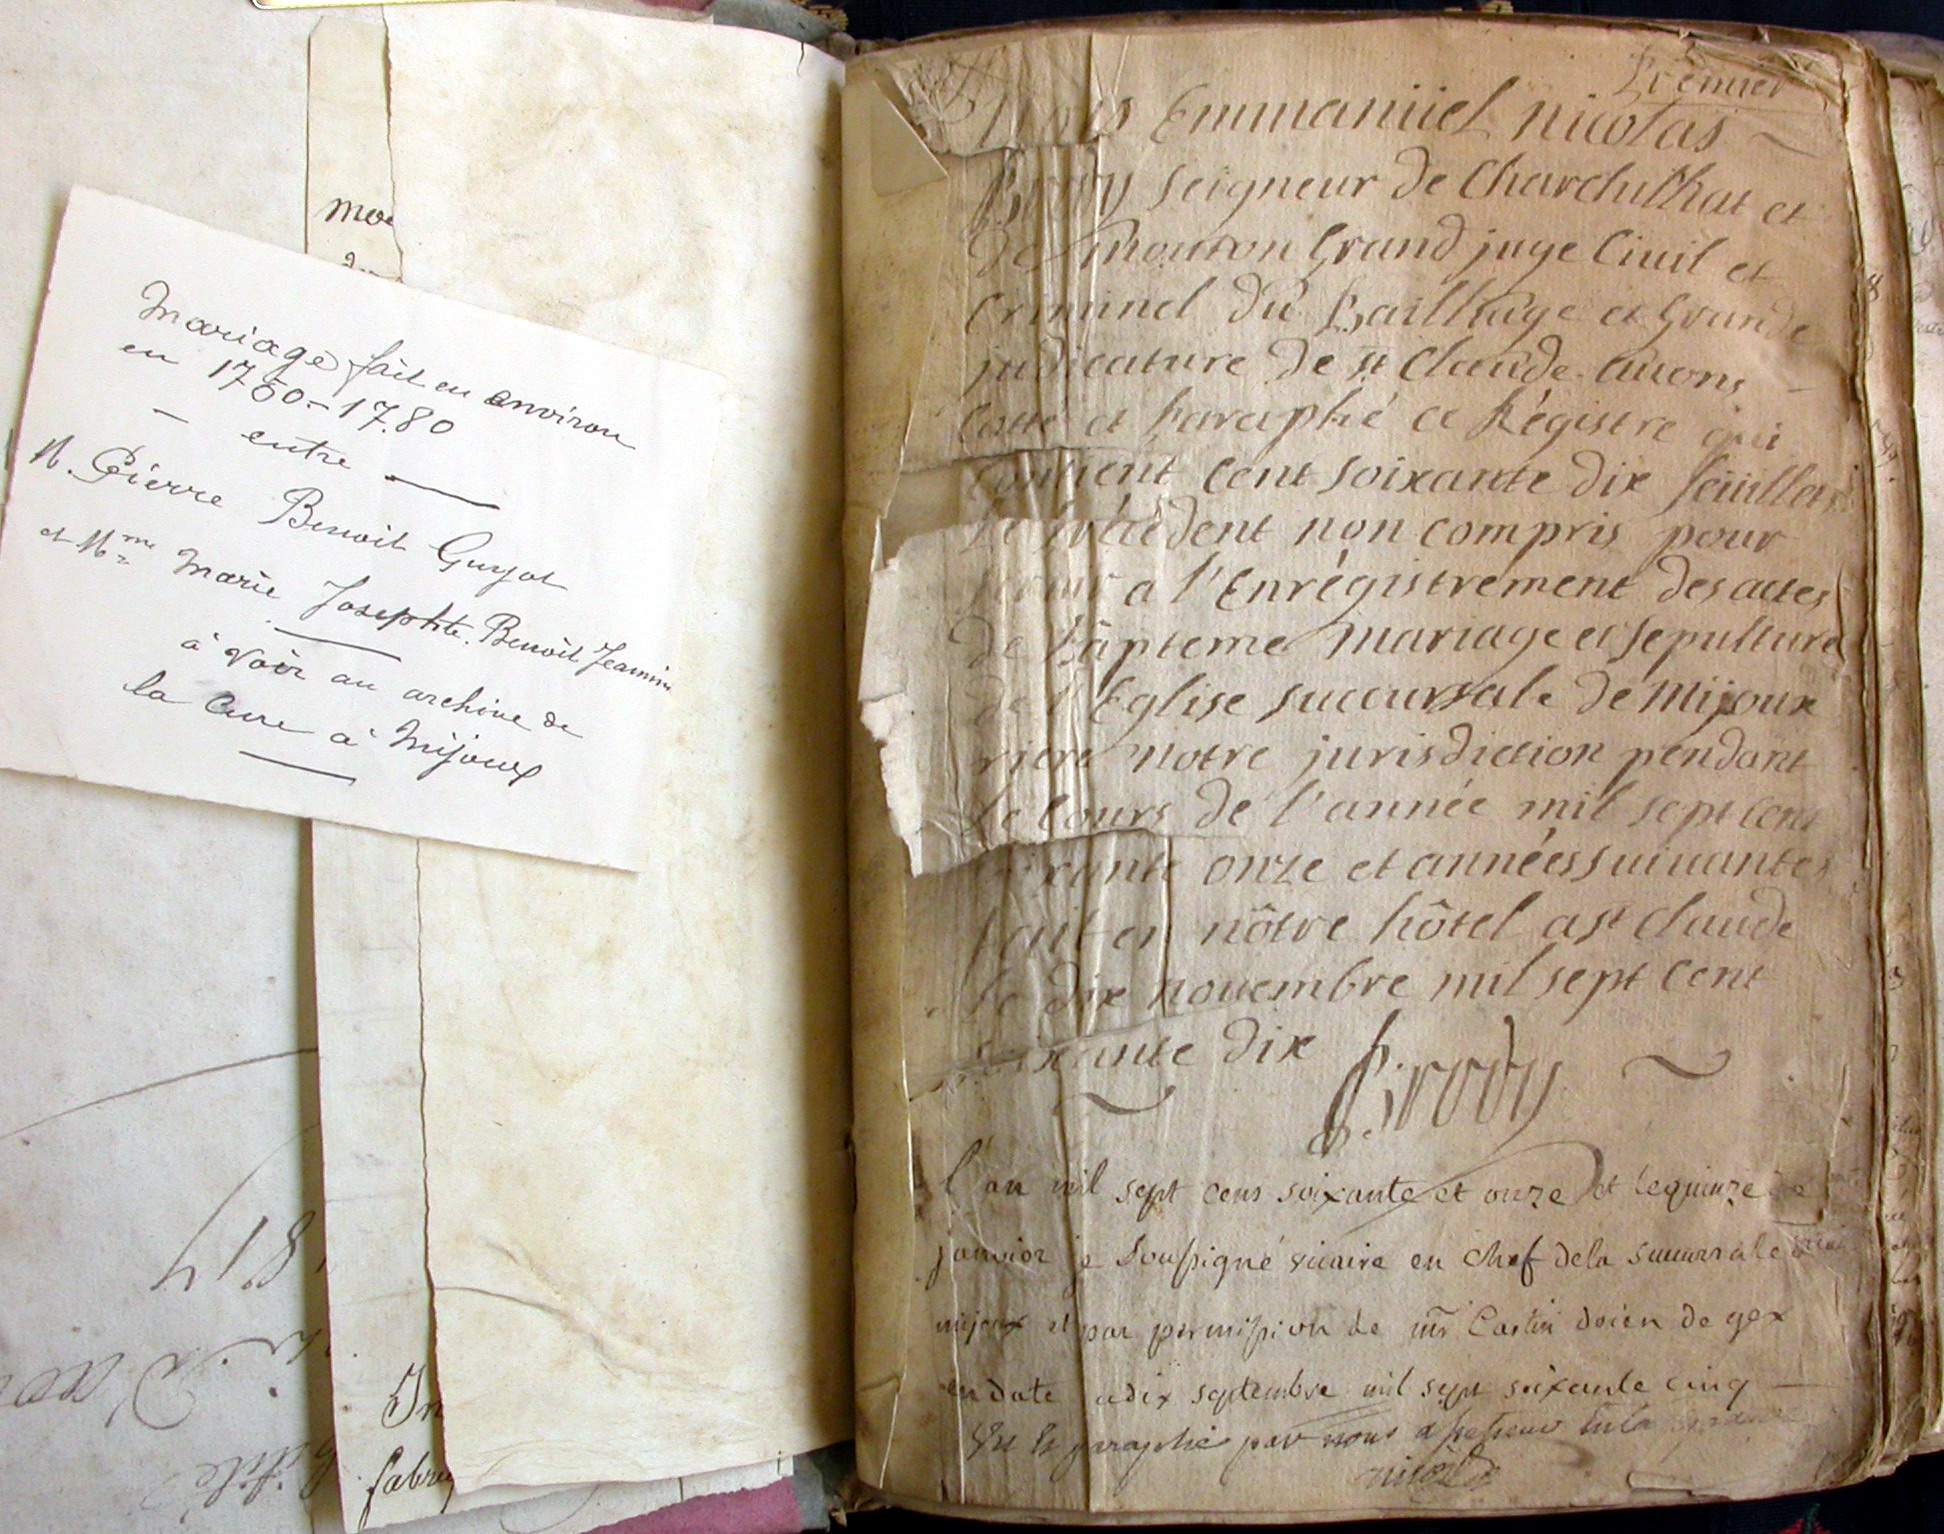 mariage fait en environ
en 1760-1780
— entre —
M. Pierre Benoit Guyot
et Mme Marie Josephte. Benoit Jeannin
à voir au archive de
la Cure à Mijoux
817
In
fabri
Premier
Nous Emmanüel Nicolas
Brody seigneur de Charchilliat et
de mouton Grand juge Civil et
Criminel du Bailliage et Grande
judicature de st Claude. avons
Cotté et paraphé ce Régistre qui
contient Cent soixante dix feüillets
le précédent non compris pour
servir a l'Enrégistrement des actes
de Bâpteme mariage et sepulture
de l'Eglise succursale de Mijoux
riere notre jurisdiction pendant
le Cours de l'année mil sept cent
soixante onze et années suivantes
fait en nôtre hôtel a st Claude
le dix novembre mil sept Cent
soixante dix
Brody
l'an mil sept cens soixante et onze et le quinze de
janvier je soussigné vicaire en chef de la succursale de
mijoux et par permission de mr Castin doien de gex
en date du dix septembre mil sept soixante cinq
paraphé par nous